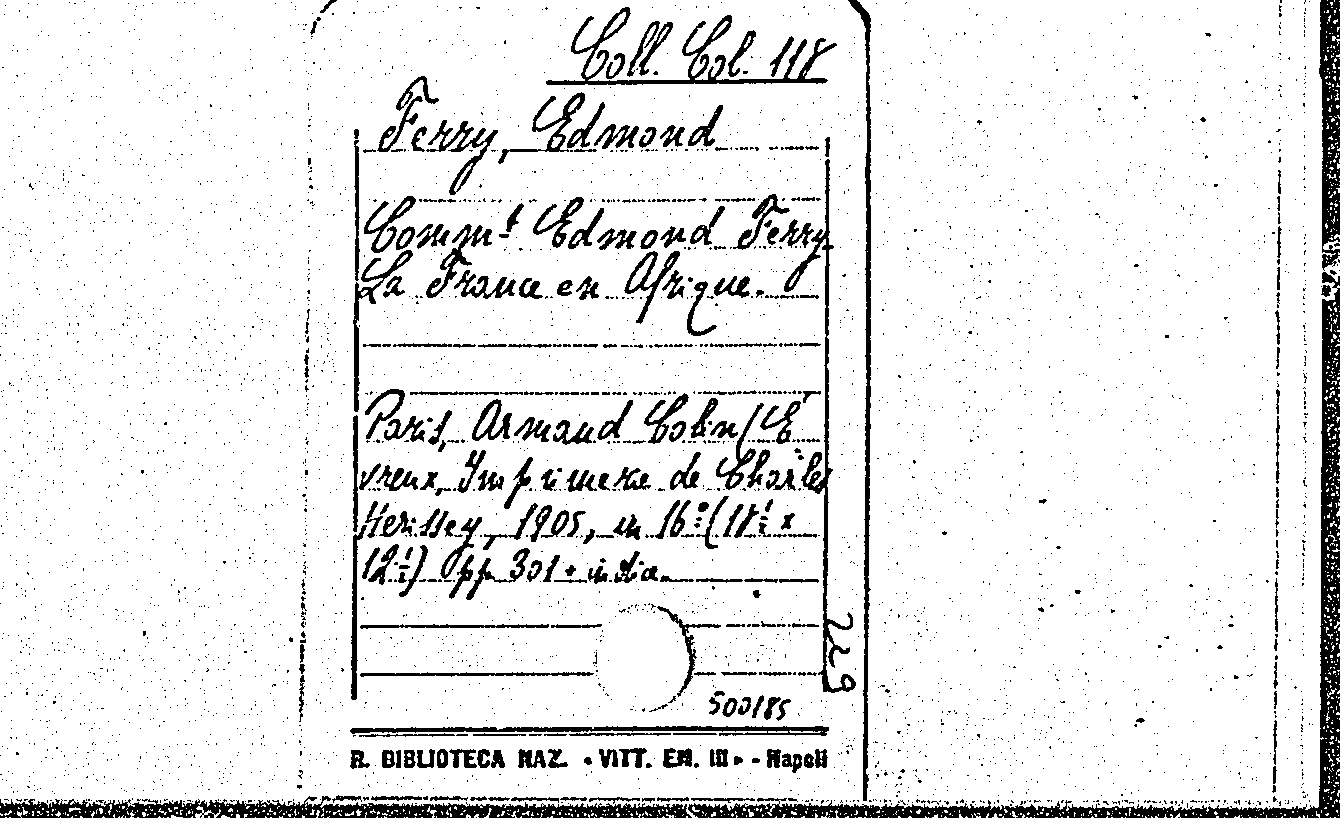 Coll. Col. 118
Ferry, Edmond
Comm.t Edmond Ferry.
La France en Afrique.
Paris, Armand Colin (É
vreux, Imprimerie de Charles
Herissey, 1905, in 16º (18½ x
12½) pp 301 + indice.
229
500185
R. BIBLIOTECA NAZ. « VITT. EM. III » - Napoli